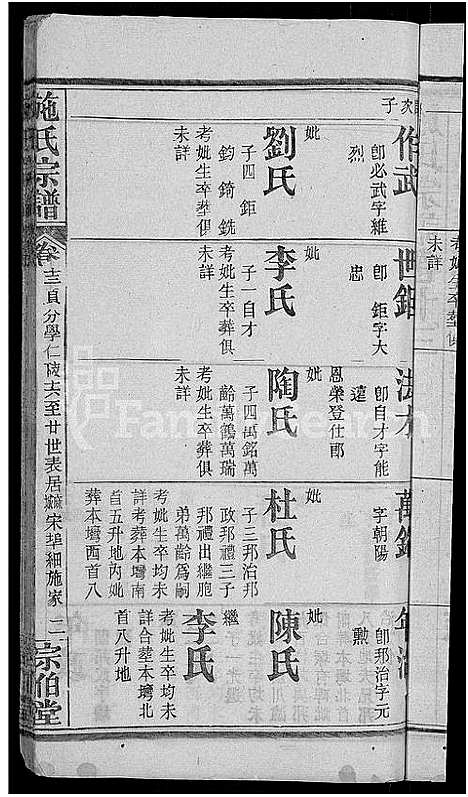 次子
作武
卽必武字維
烈
妣
劉氏
子四鉅
鈞錡銑
考妣生卒塟俱
未詳
世鉅
卽鉅字大
忠
妣
李氏
子一自才
考妣生卒葬俱
未詳
法才
卽自才字能
遠
恩榮登仕郎
妣
陶氏
子四萬銘萬
齡萬鶴萬瑞
考妣生卒葬俱
未詳
萬銘
字朝陽
妣
杜氏
子三邦治邦
政邦禮三子
邦禮出繼胞
弟萬齡爲嗣
考妣生卒均未
詳考葬本塆南
首五升地內妣
葬本塆西首八
卽邦治字元
勲
妣
陳氏
繼
李氏
考妣生卒均未
詳合塟本塆北
首八升地
施氏宗譜
卷十三貞分學仁陵六至廿世表居麻城宋埠細施家
宗伯堂
未詳